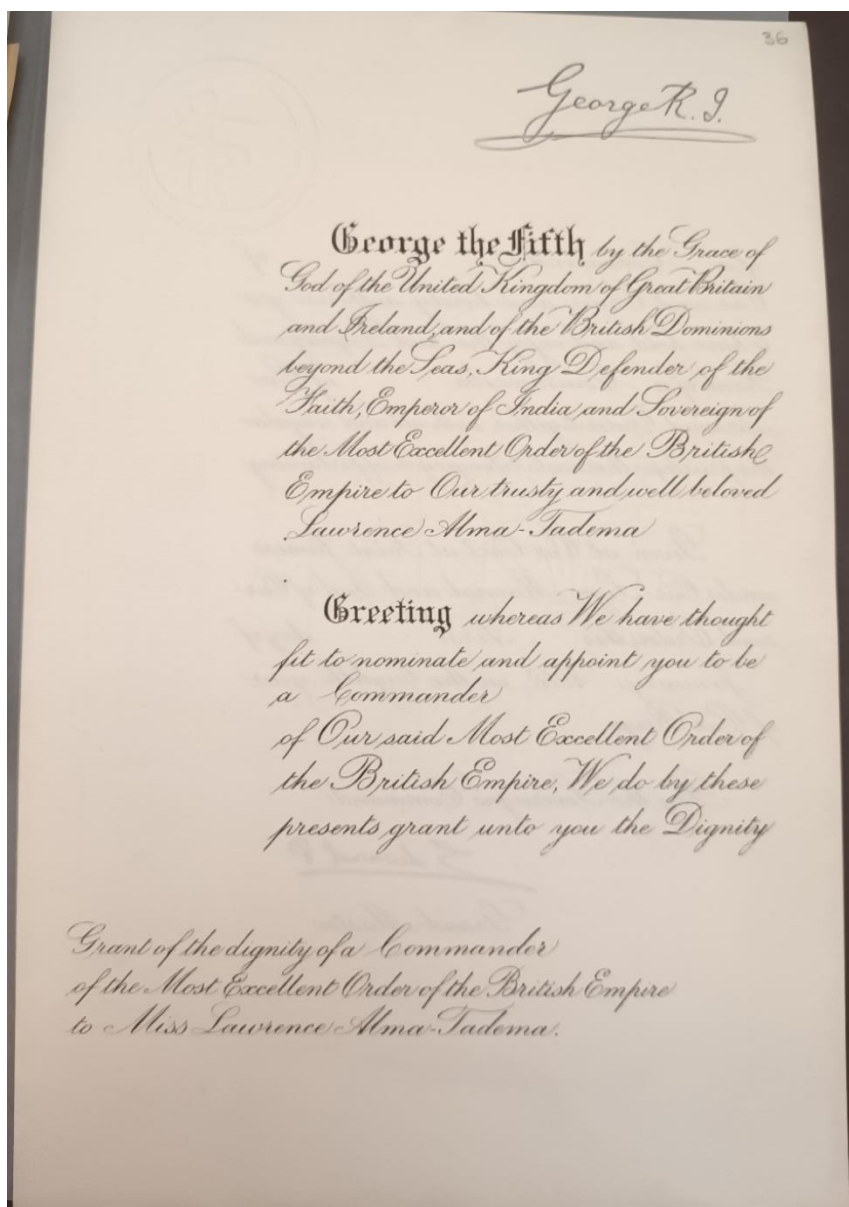 36
George R. I.
George the Fifth by the Grace of
God of the United Kingdom of Great Britain
and Ireland, and of the British Dominions
beyond the Seas, King Defender of the
Faith, Emperor of India and Sovereign of
the Most Excellent Order of the British
Empire to Our trusty and well beloved
Lawrence Alma-Tadema
Greeting whereas We have thought
fit to nominate and appoint you to be
a Commander
of Our said Most Excellent Order of
the British Empire, We do by these
presents grant unto you the Dignity
Grant of the dignity of a Commander
of the Most Excellent Order of the British Empire
to Miss Lawrence Alma-Tadema.